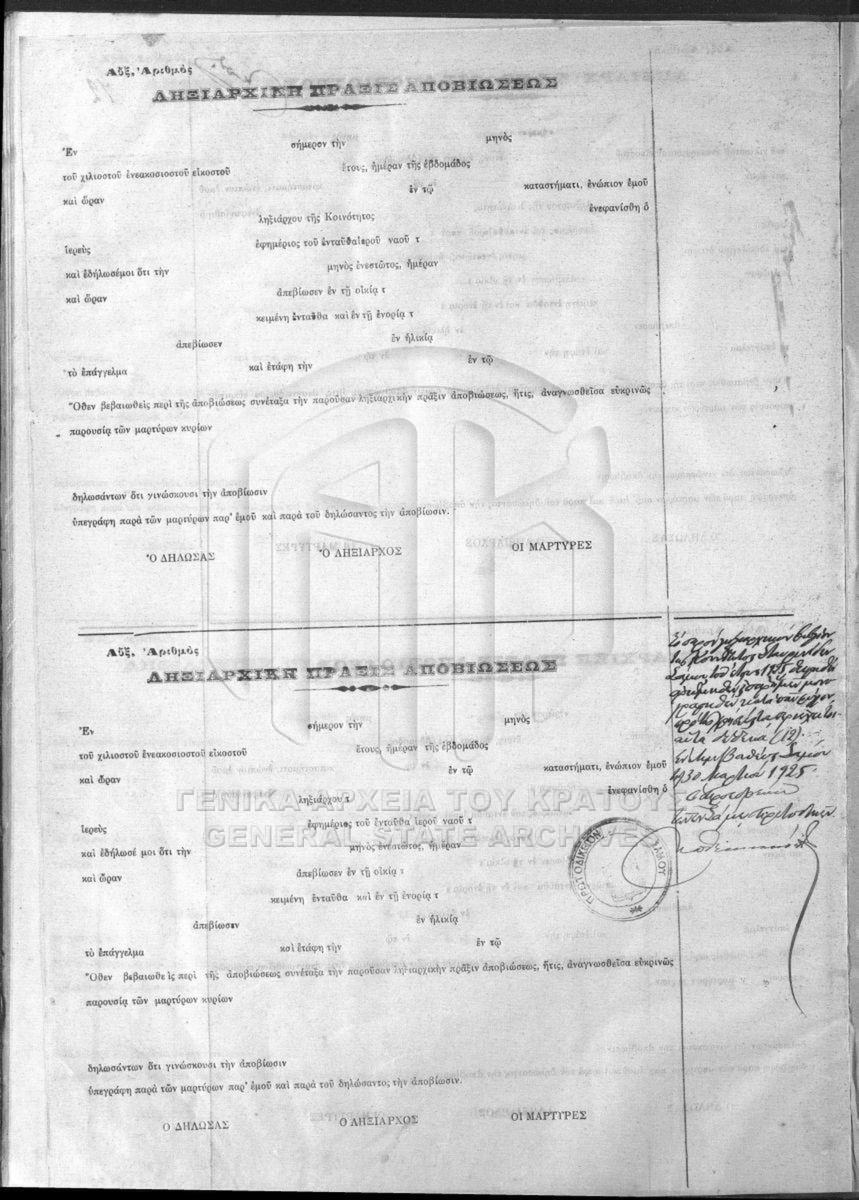 Αὔξ. Ἀριθμὸς
ΛΗΞΙΑΡΧΙΚΗ ΠΡΑΞΙΣ ΑΠΟΒΙΩΣΕΩΣ
Ἐν σήμερον τὴν μηνὸς
τοῦ χιλιοστοῦ ἐνεακοσιοστοῦ εἰκοστοῦ ἔτους, ἡμέραν τῆς ἑβδομάδος
καὶ ὥραν ἐν τῷ καταστήματι, ἐνώπιον ἐμοῦ
ληξιάρχου τῆς Κοινότητος ἐνεφανίσθη ὁ
ἱερεὺς ἐφημέριος τοῦ ἐνταῦθα ἱεροῦ ναοῦ τ
καὶ ἐδήλωσέ μοι ὅτι τὴν μηνὸς ἐνεστῶτος, ἡμέραν
καὶ ὥραν ἀπεβίωσεν ἐν τῇ οἰκίᾳ τ
κειμένη ἐνταῦθα καὶ ἐν τῇ ἐνορίᾳ τ
ἀπεβίωσεν ἐν ἡλικίᾳ
τὸ ἐπάγγελμα καὶ ἐτάφη τὴν ἐν τῷ
Ὅθεν βεβαιωθεὶς περὶ τῆς ἀποβιώσεως συνέταξα τὴν παροῦσαν ληξιαρχικὴν πρᾶξιν ἀποβιώσεως, ἥτις, ἀναγνωσθεῖσα εὐκρινῶς
παρουσίᾳ τῶν μαρτύρων κυρίων
δηλωσάντων ὅτι γινώσκουσι τὴν ἀποβίωσιν
ὑπεγράφη παρὰ τῶν μαρτύρων παρ' ἐμοῦ καὶ παρὰ τοῦ δηλώσαντος τὴν ἀποβίωσιν.
Ὁ ΔΗΛΩΣΑΣ Ὁ ΛΗΞΙΑΡΧΟΣ ΟΙ ΜΑΡΤΥΡΕΣ
Αὔξ. Ἀριθμὸς
ΛΗΞΙΑΡΧΙΚΗ ΠΡΑΞΙΣ ΑΠΟΒΙΩΣΕΩΣ
Ἐν σήμερον τὴν μηνὸς
τοῦ χιλιοστοῦ ἐνεακοσιοστοῦ εἰκοστοῦ ἔτους, ἡμέραν τῆς ἑβδομάδος
καὶ ὥραν ἐν τῷ καταστήματι, ἐνώπιον ἐμοῦ
ληξιάρχου τ ἐνεφανίσθη ὁ
ΓΕΝΙΚΑ ΑΡΧΕΙΑ ΤΟΥ ΚΡΑΤΟΥΣ
GENERAL STATE ARCHIVES
ἱερεὺς ἐφημέριος τοῦ ἐνταῦθα ἱεροῦ ναοῦ τ
καὶ ἐδήλωσέ μοι ὅτι τὴν μηνὸς ἐνεστῶτος, ἡμέραν
καὶ ὥραν ἀπεβίωσεν ἐν τῇ οἰκίᾳ τ
κειμένη ἐνταῦθα καὶ ἐν τῇ ἐνορίᾳ τ
ἀπεβίωσεν ἐν ἡλικίᾳ
τὸ ἐπάγγελμα καὶ ἐτάφη τὴν ἐν τῷ
Ὅθεν βεβαιωθεὶς περὶ τῆς ἀποβιώσεως συνέταξα τὴν παροῦσαν ληξιαρχικὴν πρᾶξιν ἀποβιώσεως, ἥτις, ἀναγνωσθεῖσα εὐκρινῶς
παρουσίᾳ τῶν μαρτύρων κυρίων
δηλωσάντων ὅτι γινώσκουσι τὴν ἀποβίωσιν
ὑπεγράφη παρὰ τῶν μαρτύρων παρ' ἐμοῦ καὶ παρὰ τοῦ δηλώσαντος τὴν ἀποβίωσιν.
Ὁ ΔΗΛΩΣΑΣ Ὁ ΛΗΞΙΑΡΧΟΣ ΟΙ ΜΑΡΤΥΡΕΣ
Τὸ παρὸν ληξιαρχικὸν βιβλίον
τῆς Κοινότητος
Σάμου τοῦ ἔτους 1925
δώδεκα (12).
Ἐν Λιμένι Βαθέος Σάμου
τῇ 30 Μαρτίου 1925
ΠΡΩΤΟΔΙΚΕΙΟΝ ΣΑΜΟΥ